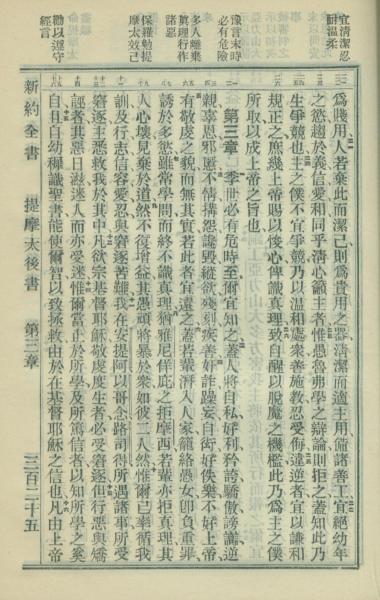 宜清潔忍
耐溫柔
豫言末時
必有危險
多人離棄
眞理行作
諸惡
保羅勉提
摩太效己
勸以遵守
經言
爲賤用人若棄此而潔己則爲貴用之器清潔而適主用備諸善工宜絕幼年
之慾趨於義信愛和同乎清心籲主者惟愚魯弗學之辯論則拒之蓋知此乃
生爭競也主之僕不宜爭競乃以溫和處衆善施教忍受侮違逆者宜以謙和
規正之庶幾上帝賜以悛心俾識真理致自醒以脫魔之機檻此乃爲主之僕
所取以成上帝之旨也
第三章 季世必有危時至爾宜知之蓋人將自私好利矜誇驕傲謗讟逆
親辜恩邪慝不情搆怨讒毀縱欲殘刻疾善奸詐躁妄自衒好佚樂不好上帝
有敬虔之貌而無其實若此者宜遠之蓋若輩潛入人家籠絡愚女卽負重罪
誘於多慾雖常學問而終不識真理猶雅尼佯庇之拒摩西若輩亦拒真理其
人心壞見棄於道然不復增益其愚頑將暴於衆如彼二人然惟爾已率循我
訓及行志信容愛忍與窘逐苦難我在安提阿以哥念路司得所遇諸事所受
窘逐主悉救我於其中凡欲宗基督耶穌敬虔度生者必受窘逐但行惡與矯
誣者其惡日滋迷人而亦受迷惟爾當正於所學及所篤信者以知所學之奚
自且自幼穉識聖書能使爾智以致拯救由於在基督耶穌之信也凡由上帝
新約全書 提摩太後書 第三章 三百二十五